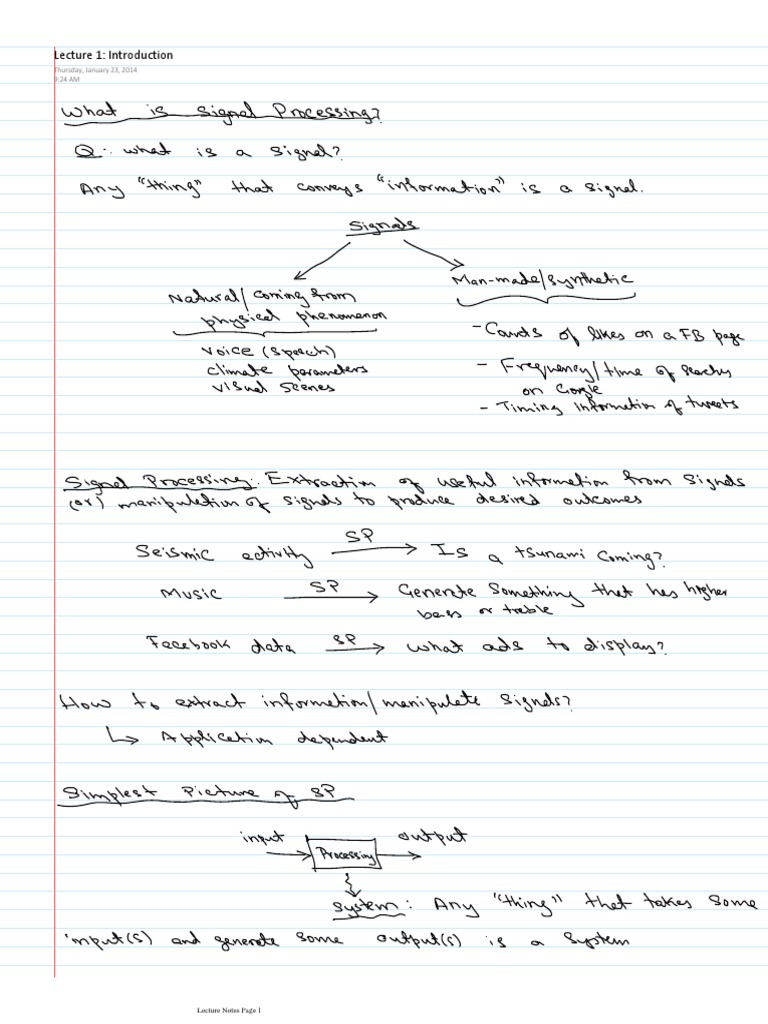 Lecture 1: Introduction
Thursday, January 23, 2014
9:24 AM
What is Signal Processing?
Q: What is a Signal?
Any "thing" that conveys "information" is a signal.
Signals
Natural/Coming from
physical phenomenon
Voice (speech)
climate parameters
visual scenes
Man-made/synthetic
- Counts of likes on a FB page
- Frequency/time of searches
on Google
- Timing information of tweets
Signal Processing: Extraction of useful information from signals
(or) manipulation of signals to produce desired outcomes
Seismic activity SP Is a tsunami coming?
Music SP Generate something that has higher
bass or treble
Facebook data SP What ads to display?
How to extract information/manipulate signals?
Application dependent
Simplest Picture of SP
input Processing output
System: Any "thing" that takes some
input(s) and generate some output(s) is a system
Lecture Notes Page 1